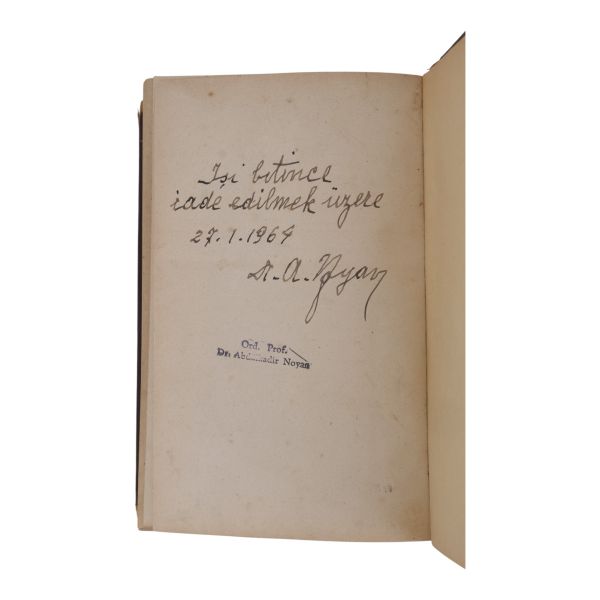 İşi bitince
iade edilmek üzere
27.1.1964
Dr. A. Noyan
Ord. Prof.
Dr. Abdülkadir Noyan